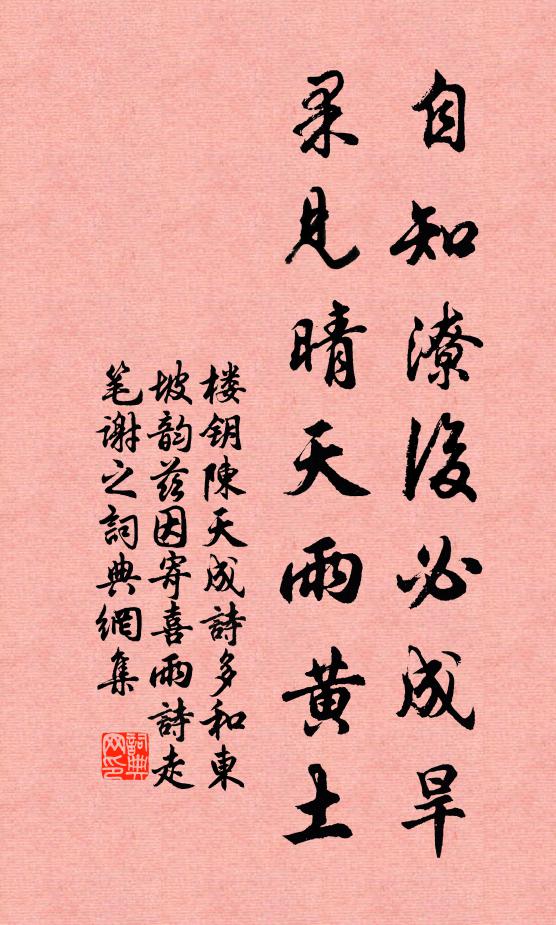 自知潦後必成旱
果見晴天雨黄土
楼钥陳天成詩多和東
坡韵兹因寄喜雨詩走
笔谢之詞典網集
詞典
网印